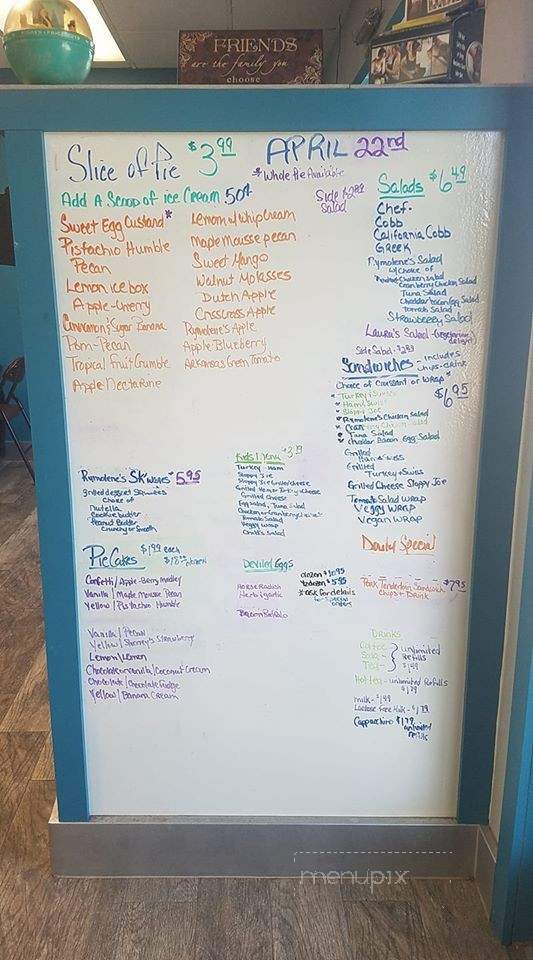 FRIENDS
are the family you
choose
Slice of Pie $3.99
APRIL 22nd
*Whole Pie Available
Add A Scoop of ice Cream 50¢
Sweet Egg Custard*
Pistachio Humble
Pecan
Lemon ice box
Apple-Cherry
Cinnamon & Sugar Banana
Pom-Pecan
Tropical Fruit Crumble
Apple Nectarine
Lemon w/ Whip Cream
Maple Mousse Pecan
Sweet Mango
Walnut Molasses
Dutch Apple
CrissCross Apple
Rymolene's Apple
Apple Blueberry
Arkansas Green Tomato
Side $2.89
Salad
Salads $6.49
Chef-
Cobb
California Cobb
Greek
Rymolene's Salad
w/ Choice of
Chicken Salad
Cranberry Chicken Salad
Tuna Salad
Cheddar bacon Egg Salad
Tomato Salad
Strawberry Salad
Laura's Salad - (vegetarian delight)
Side Salad - $2.89
Sandwiches - includes
chips + drink
Choice of Croissant or WRAP $6.95
* Turkey & Swiss
* Ham & Swiss
* Sloppy Joe
* Rymolene's Chicken Salad
* Cranberry Chicken Salad
* Tuna Salad
* Cheddar Bacon Egg Salad
Grilled
Ham & Swiss
Grilled
Turkey & Swiss
Grilled Cheese Sloppy Joe
Tomato Salad WRAP
Veggy WRAP
Vegan WRAP
Rymolene's SKwiches $5.95
grilled dessert SKwiches
Choice of
nutella
Cookie butter
Peanut Butter
Crunchy or Smooth
Kids Menu
Turkey Ham
Sloppy Joe
Sloppy Joe Grilled Cheese
Grilled Ham or Turkey & Cheese
Grilled Cheese
Egg Salad, Tuna Salad
Chicken or Cranberry Chicken
Tomato Salad
Veggy Wrap
Chef's Salad
PieCakes $1.99 each
Confetti/Apple-Berry Medley
Vanilla/Maple Mousse Pecan
Yellow/Pistachio Humble
Vanilla/Pecan
Yellow/Sherry's Strawberry
Lemon/Lemon
Chocolate or Vanilla/Coconut Cream
Chocolate/Chocolate Fudge
Yellow/Banana Cream
Deviled Eggs
dozen $10.95
½ dozen $5.95
*ask for details
for special
orders
Horse Radish
Herb & garlic
Bacon Buffalo
Daily Special
Pork Tenderloin Sandwich $7.95
Chips + Drink
Drinks
Coffee
Soda
Tea
unlimited
Refills
$1.49
Hot tea - unlimited Refills
$1.79
milk - $1.49
Lactose Free Milk - $1.79
Cappuccino $1.79
unlimited
refills
menupix